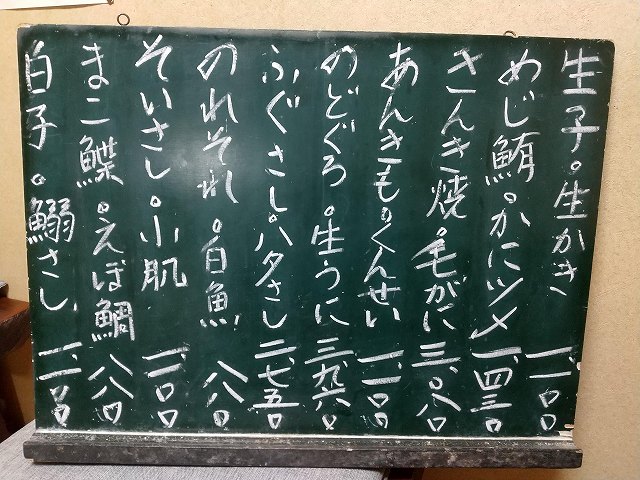 生子。生かき 一、一〇〇
めじ鮪。かにツメ 一、四三〇
さんき焼。毛がに 三、〇八〇
あんきも。くんせい 一、一〇〇
のどぐろ。生うに 三、九六〇
ふぐさし。ハタさし 二、七五〇
のれそれ。白魚 八八〇
そいさし。小肌 一、一〇〇
まこ鰈。えぼ鯛 八八〇
白子。鰯さし 一、一〇〇